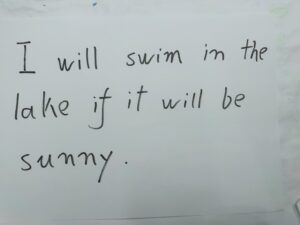 I will swim in the
lake if it will be
sunny.